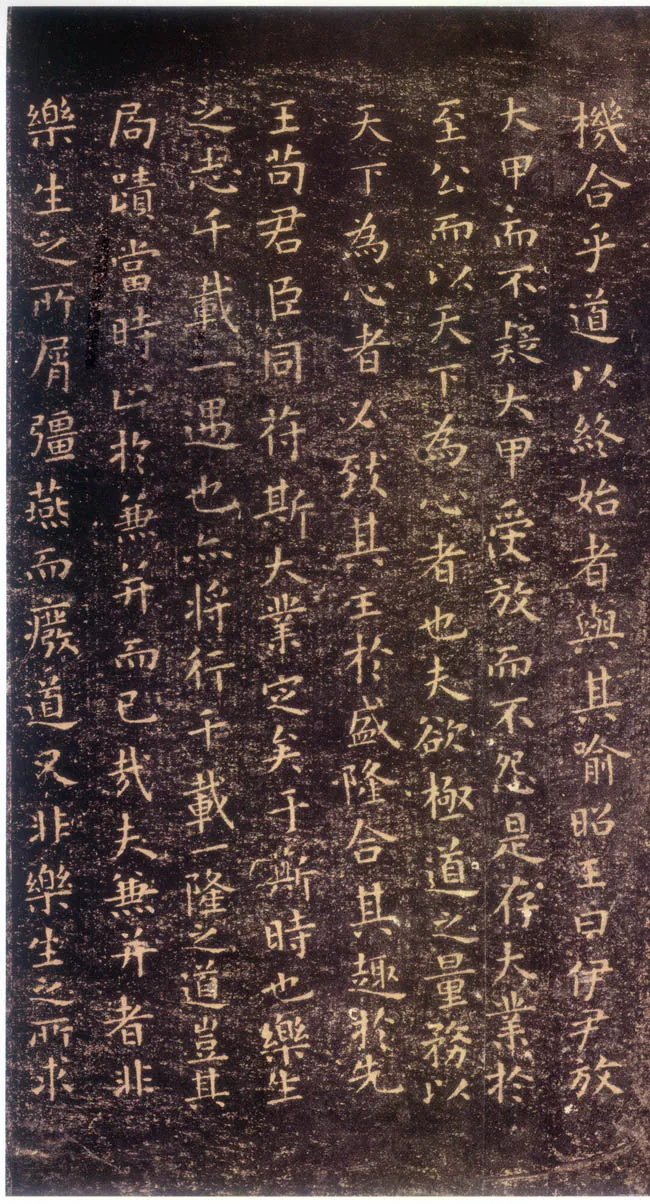 機合乎道以終始者與其喻昭王曰伊尹放
大甲而不疑大甲受放而不怨是存大業於
至公而以天下為心者也夫欲極道之量務以
天下為心者必致其主於盛隆合其趣於先
王苟君臣同符斯大業定矣于斯時也樂生
之志千載一遇也亦將行千載一隆之道豈其
局蹟當時止於兼并而已哉夫兼并者非
樂生之所屑彊燕而癈道又非樂生之所求